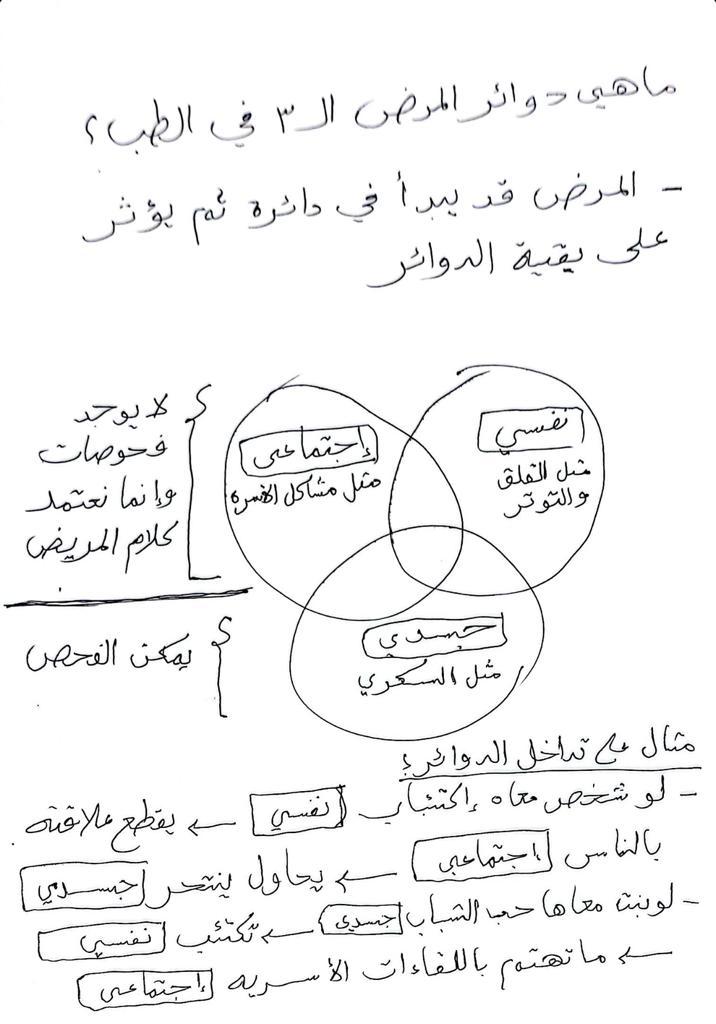 ماهي دوائر المرض الـ ٣ في الطب ؟
- المرض قد يبدأ في دائرة ثم يؤثر
على بقية الدوائر
نفسي
مثل القلق
والتوتر
إجتماعي
مثل مشاكل الأسره
لا يوجد
فحوصات
وإنما نعتمد
كلام المريض
جسدي
مثل السكري
يمكن الفحص
مثال على تداخل الدوائر:
- لو شخص معاه إكتئاب نفسي ← يقطع علاقته
بالناس إجتماعي ← يحاول ينتحر جسدي
- لو بنت معاها حب الشباب جسدي ← تكتئب نفسي
← ماتهتم باللقاءات الأسريه إجتماعي